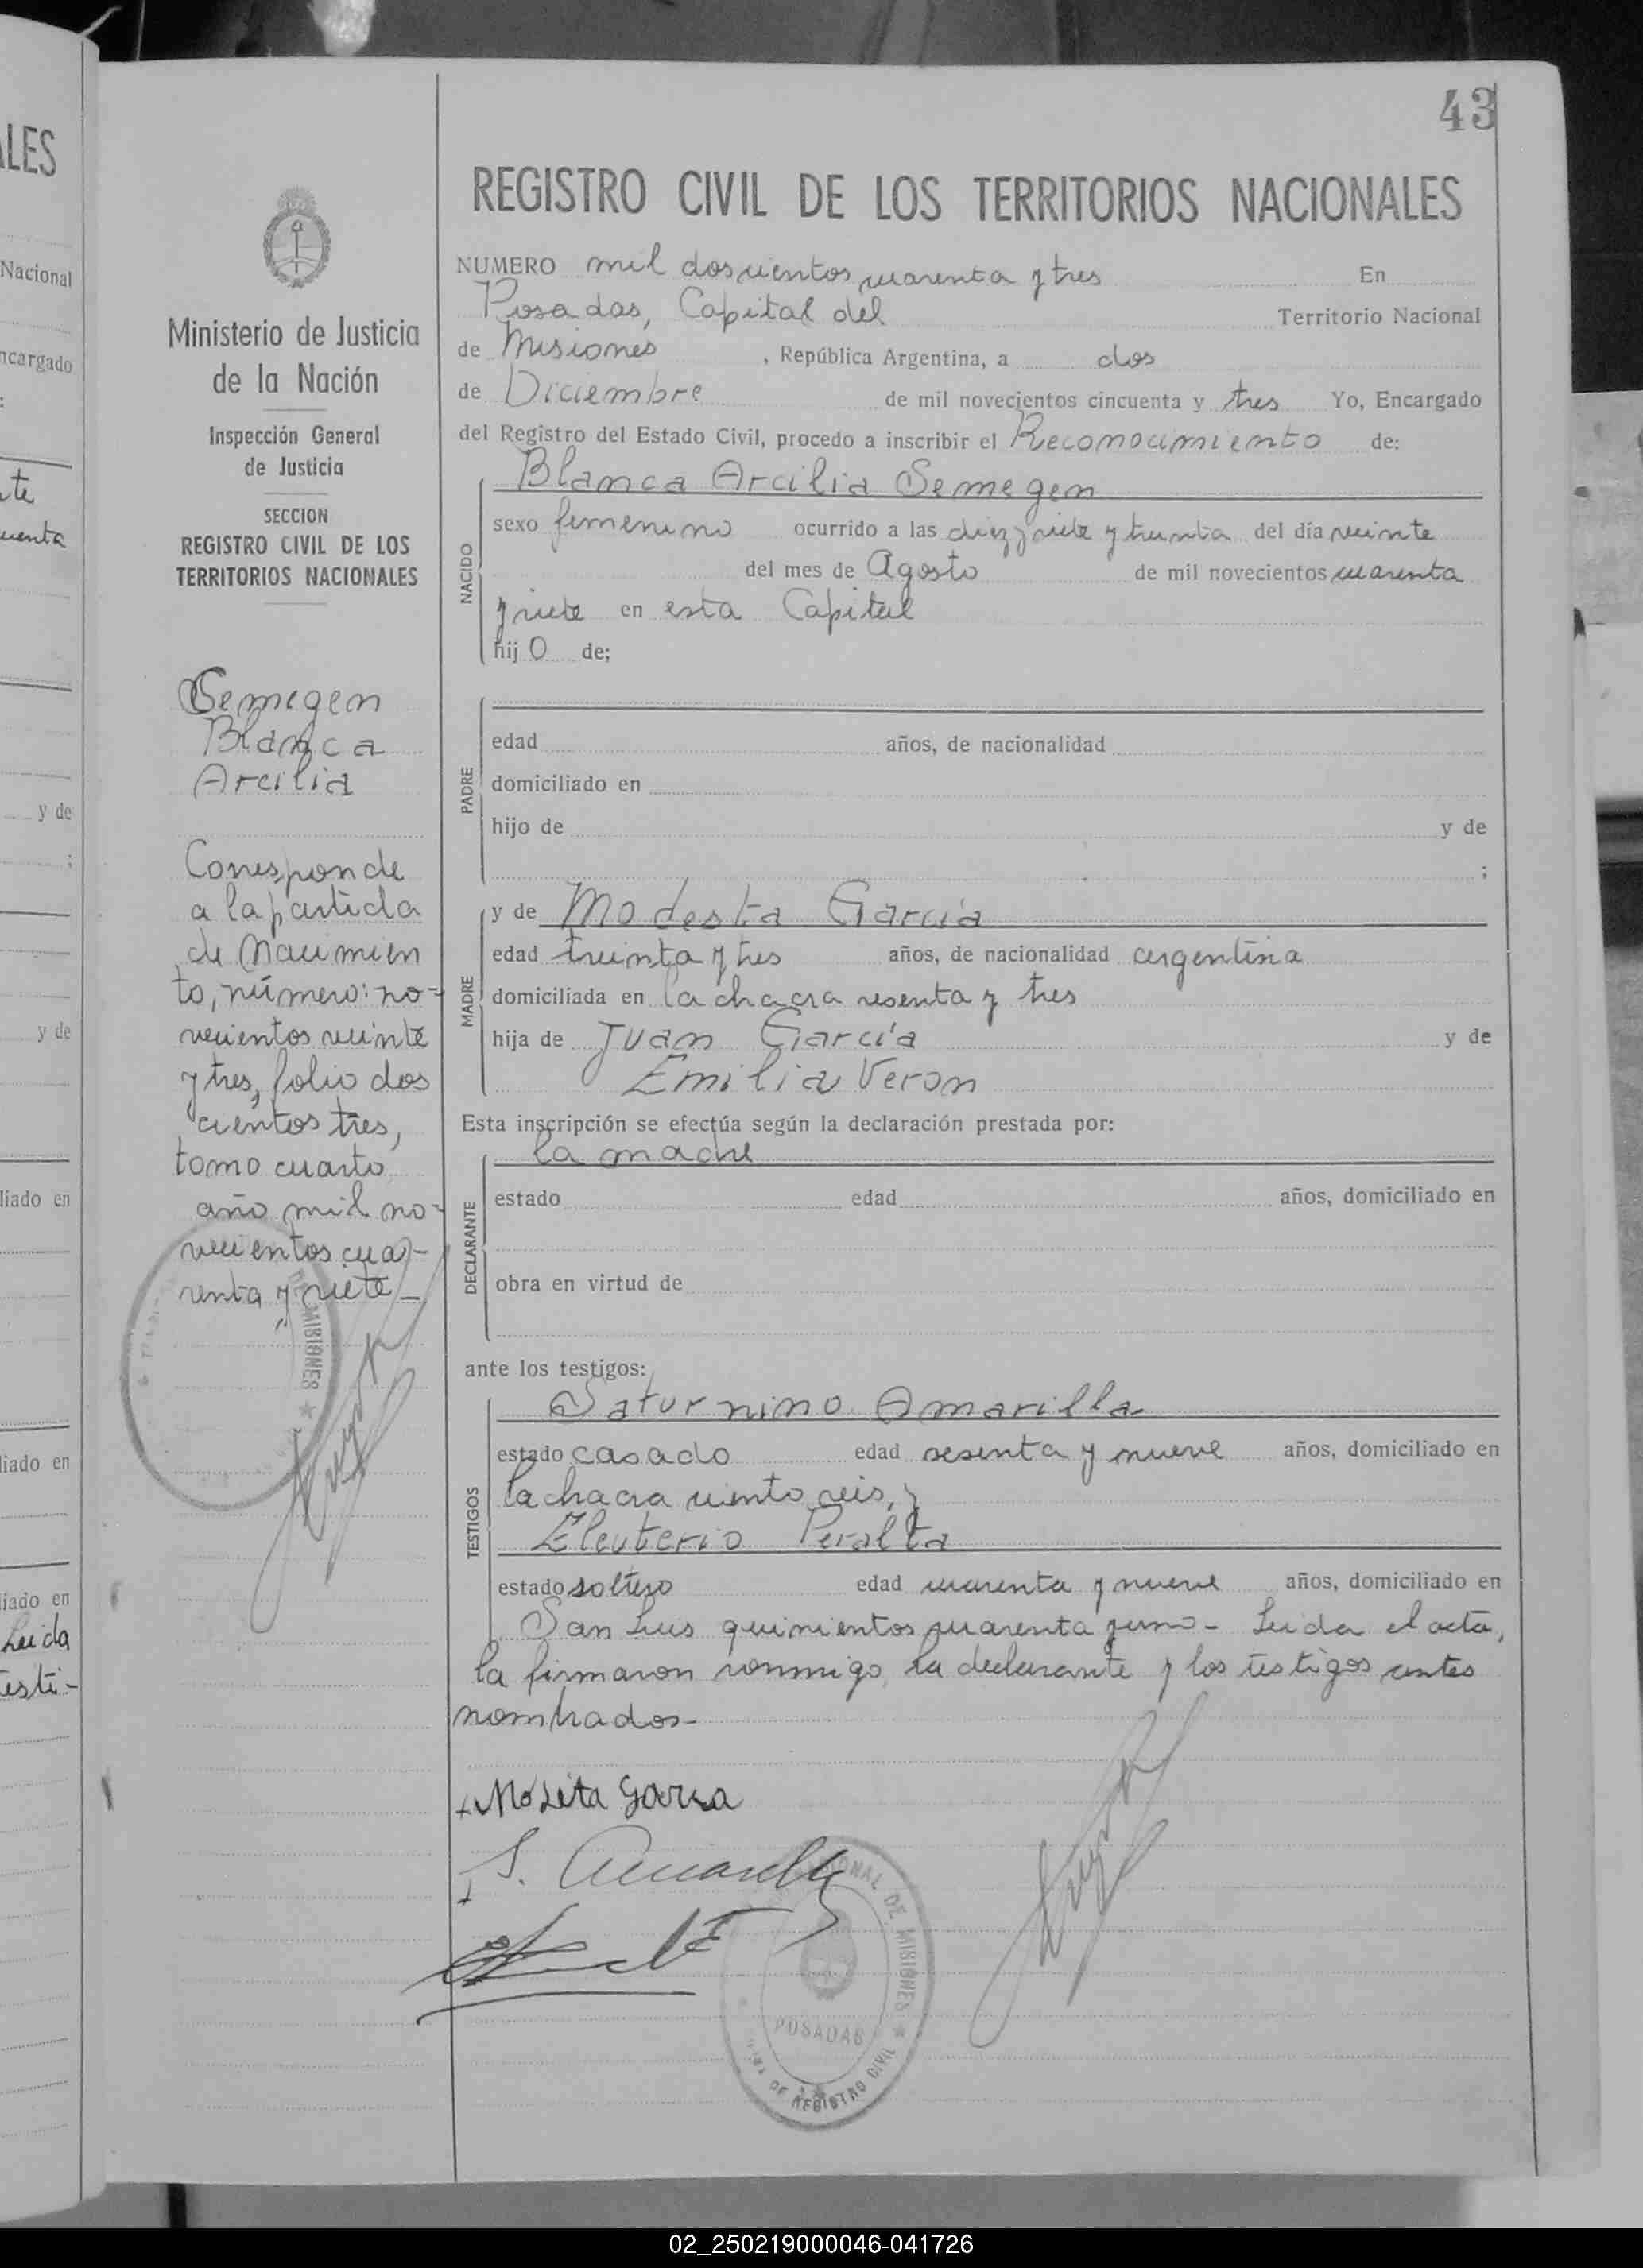 43
LES
Nacional
ncargado
:
te
uenta
y de
;
y de
liado en
liado en
iado en
Leida
testi-
Ministerio de Justicia
de la Nación
Inspección General
de Justicia
SECCION
REGISTRO CIVIL DE LOS
TERRITORIOS NACIONALES
Semegen
Blanca
Arcilia
Corresponde
a la partida
de Nacimien
to, número: no-
vecientos veinte
y tres, folio dos
cientos tres,
tomo cuarto
año mil no-
vecientos cua-
renta y siete-
MISIONES
REGISTRO CIVIL DE LOS TERRITORIOS NACIONALES
NUMERO mil doscientos cuarenta y tres En
Posadas, Capital del Territorio Nacional
de Misiones, República Argentina, a dos
de Diciembre de mil novecientos cincuenta y tres Yo, Encargado
del Registro del Estado Civil, procedo a inscribir el Reconocimiento de:
NACIDO
Blanca Arcilia Semegen
sexo femenino ocurrido a las diez y siete y treinta del día veinte
del mes de Agosto de mil novecientos cuarenta
y siete en esta Capital
hij O de;
PADRE
edad años, de nacionalidad
domiciliado en
hijo de y de
;
MADRE
y de Modesta García
edad treinta y tres años, de nacionalidad argentina
domiciliada en la chacra sesenta y tres
hija de Juan García y de
Emilia Veron
Esta inscripción se efectúa según la declaración prestada por:
DECLARANTE
la madre
estado edad años, domiciliado en
obra en virtud de
ante los testigos:
TESTIGOS
Saturnino Amarilla
estado casado edad sesenta y nueve años, domiciliado en
la chacra ciento seis, y
Eleuterio Peralta
estado soltero edad cuarenta y nueve años, domiciliado en
San Luis quinientos cuarenta y uno- Leida el acta,
la firmaron conmigo la declarante y los testigos antes
nombrados-
Modeta Garcia
S. Amarilla
NAL DE MISIONES
POSADAS
REGISTRO CIVIL
02_250219000046-041726